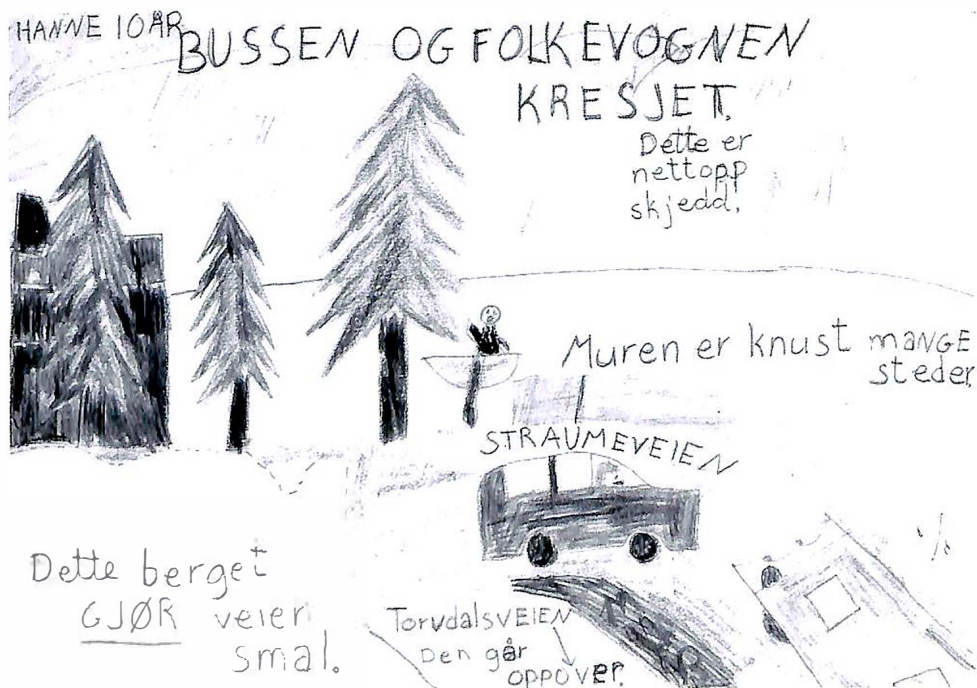 HANNE 10 ÅR
BUSSEN OG FOLKEVOGNEN
KRESJET.
Dette er
nettopp
skjedd.
Muren er knust MANGE
steder.
STRAUMEVEIEN
Dette berget
GJØR veien
smal.
TorvdalsVEIEN
Den går
oppover.